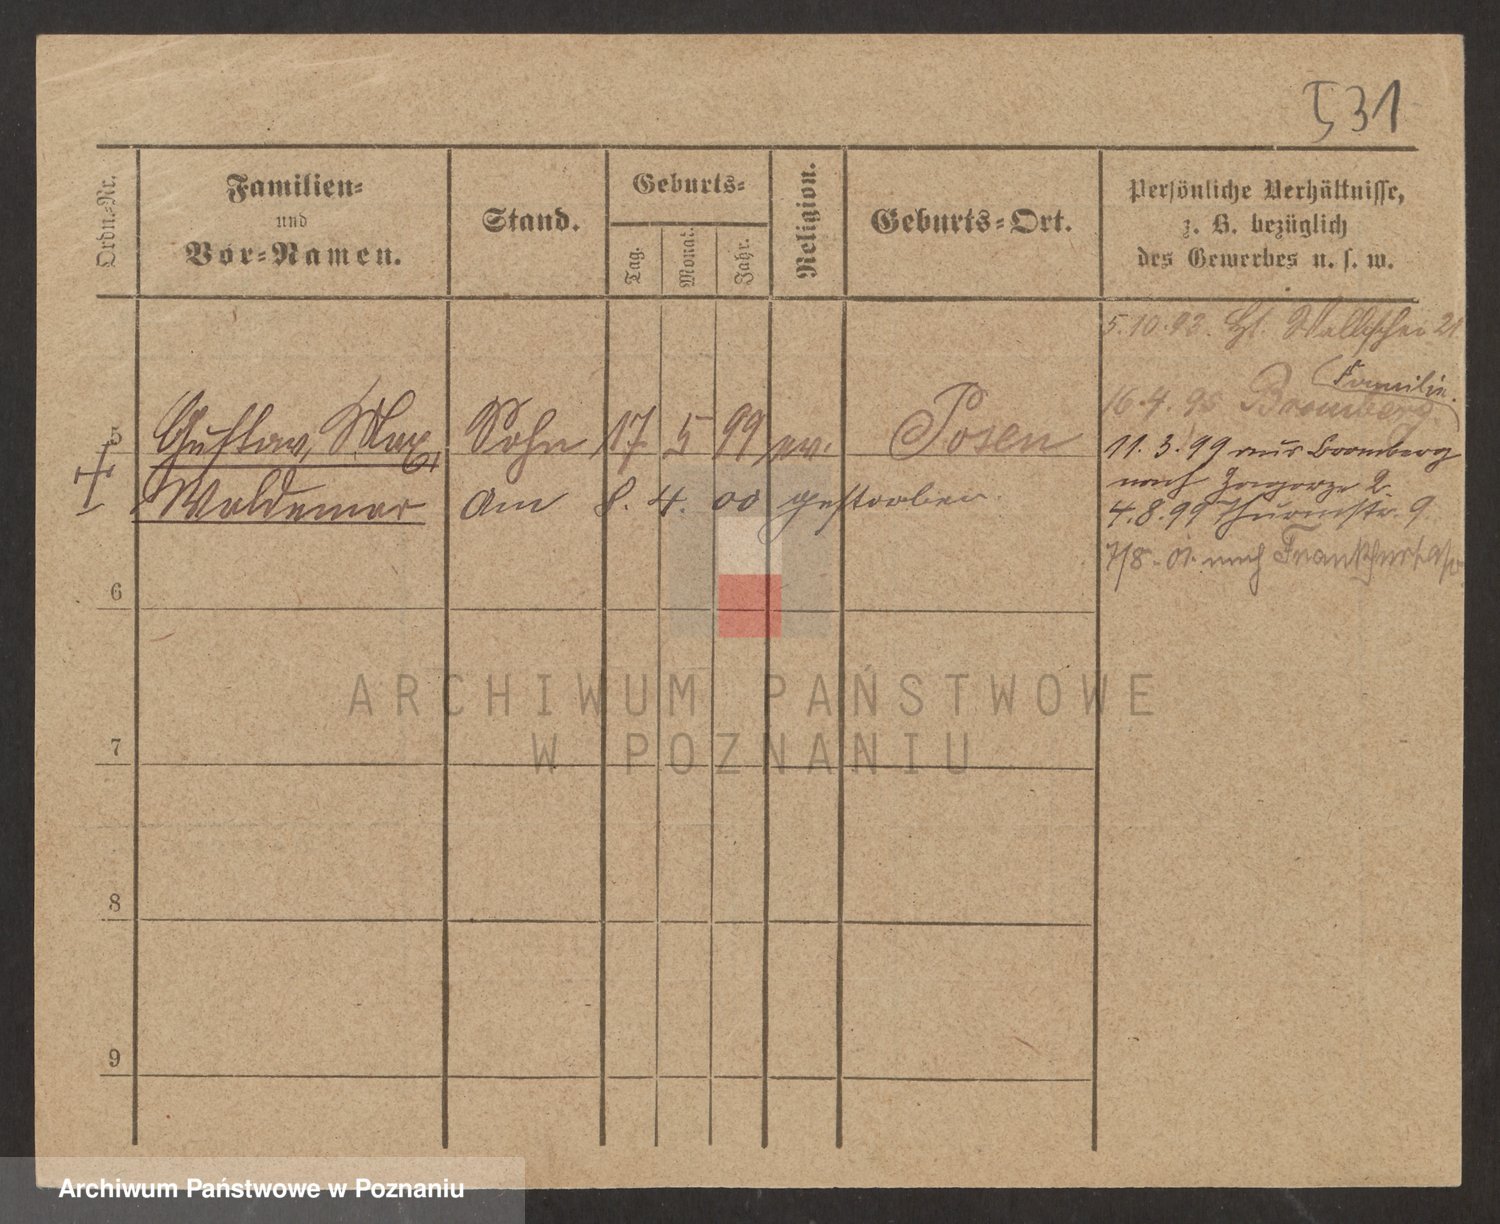 531
Ordn.-Nr.
Familien-
und
Vor-Namen.
Stand.
Geburts-
Tag.
Monat.
Jahr.
Religion.
Geburts-Ort.
Persönliche Verhältnisse,
z. B. bezüglich
des Gewerbes u. s. w.
5.10.92. Wallischei 21
Familie.
16.4.95 Bromberg.
5 Gustav, Max, Sohn 17 5 99 ev. Posen
11.3.99 aus Bromberg
nach 2.
Waldemar am 8. 4. 00 gestorben.
4.8.99 Thurmstr. 9
7/8. 01. nach Frankfurt a/o
6
7
8
9
ARCHIWUM PAŃSTWOWE
W POZNANIU
Archiwum Państwowe w Poznaniu